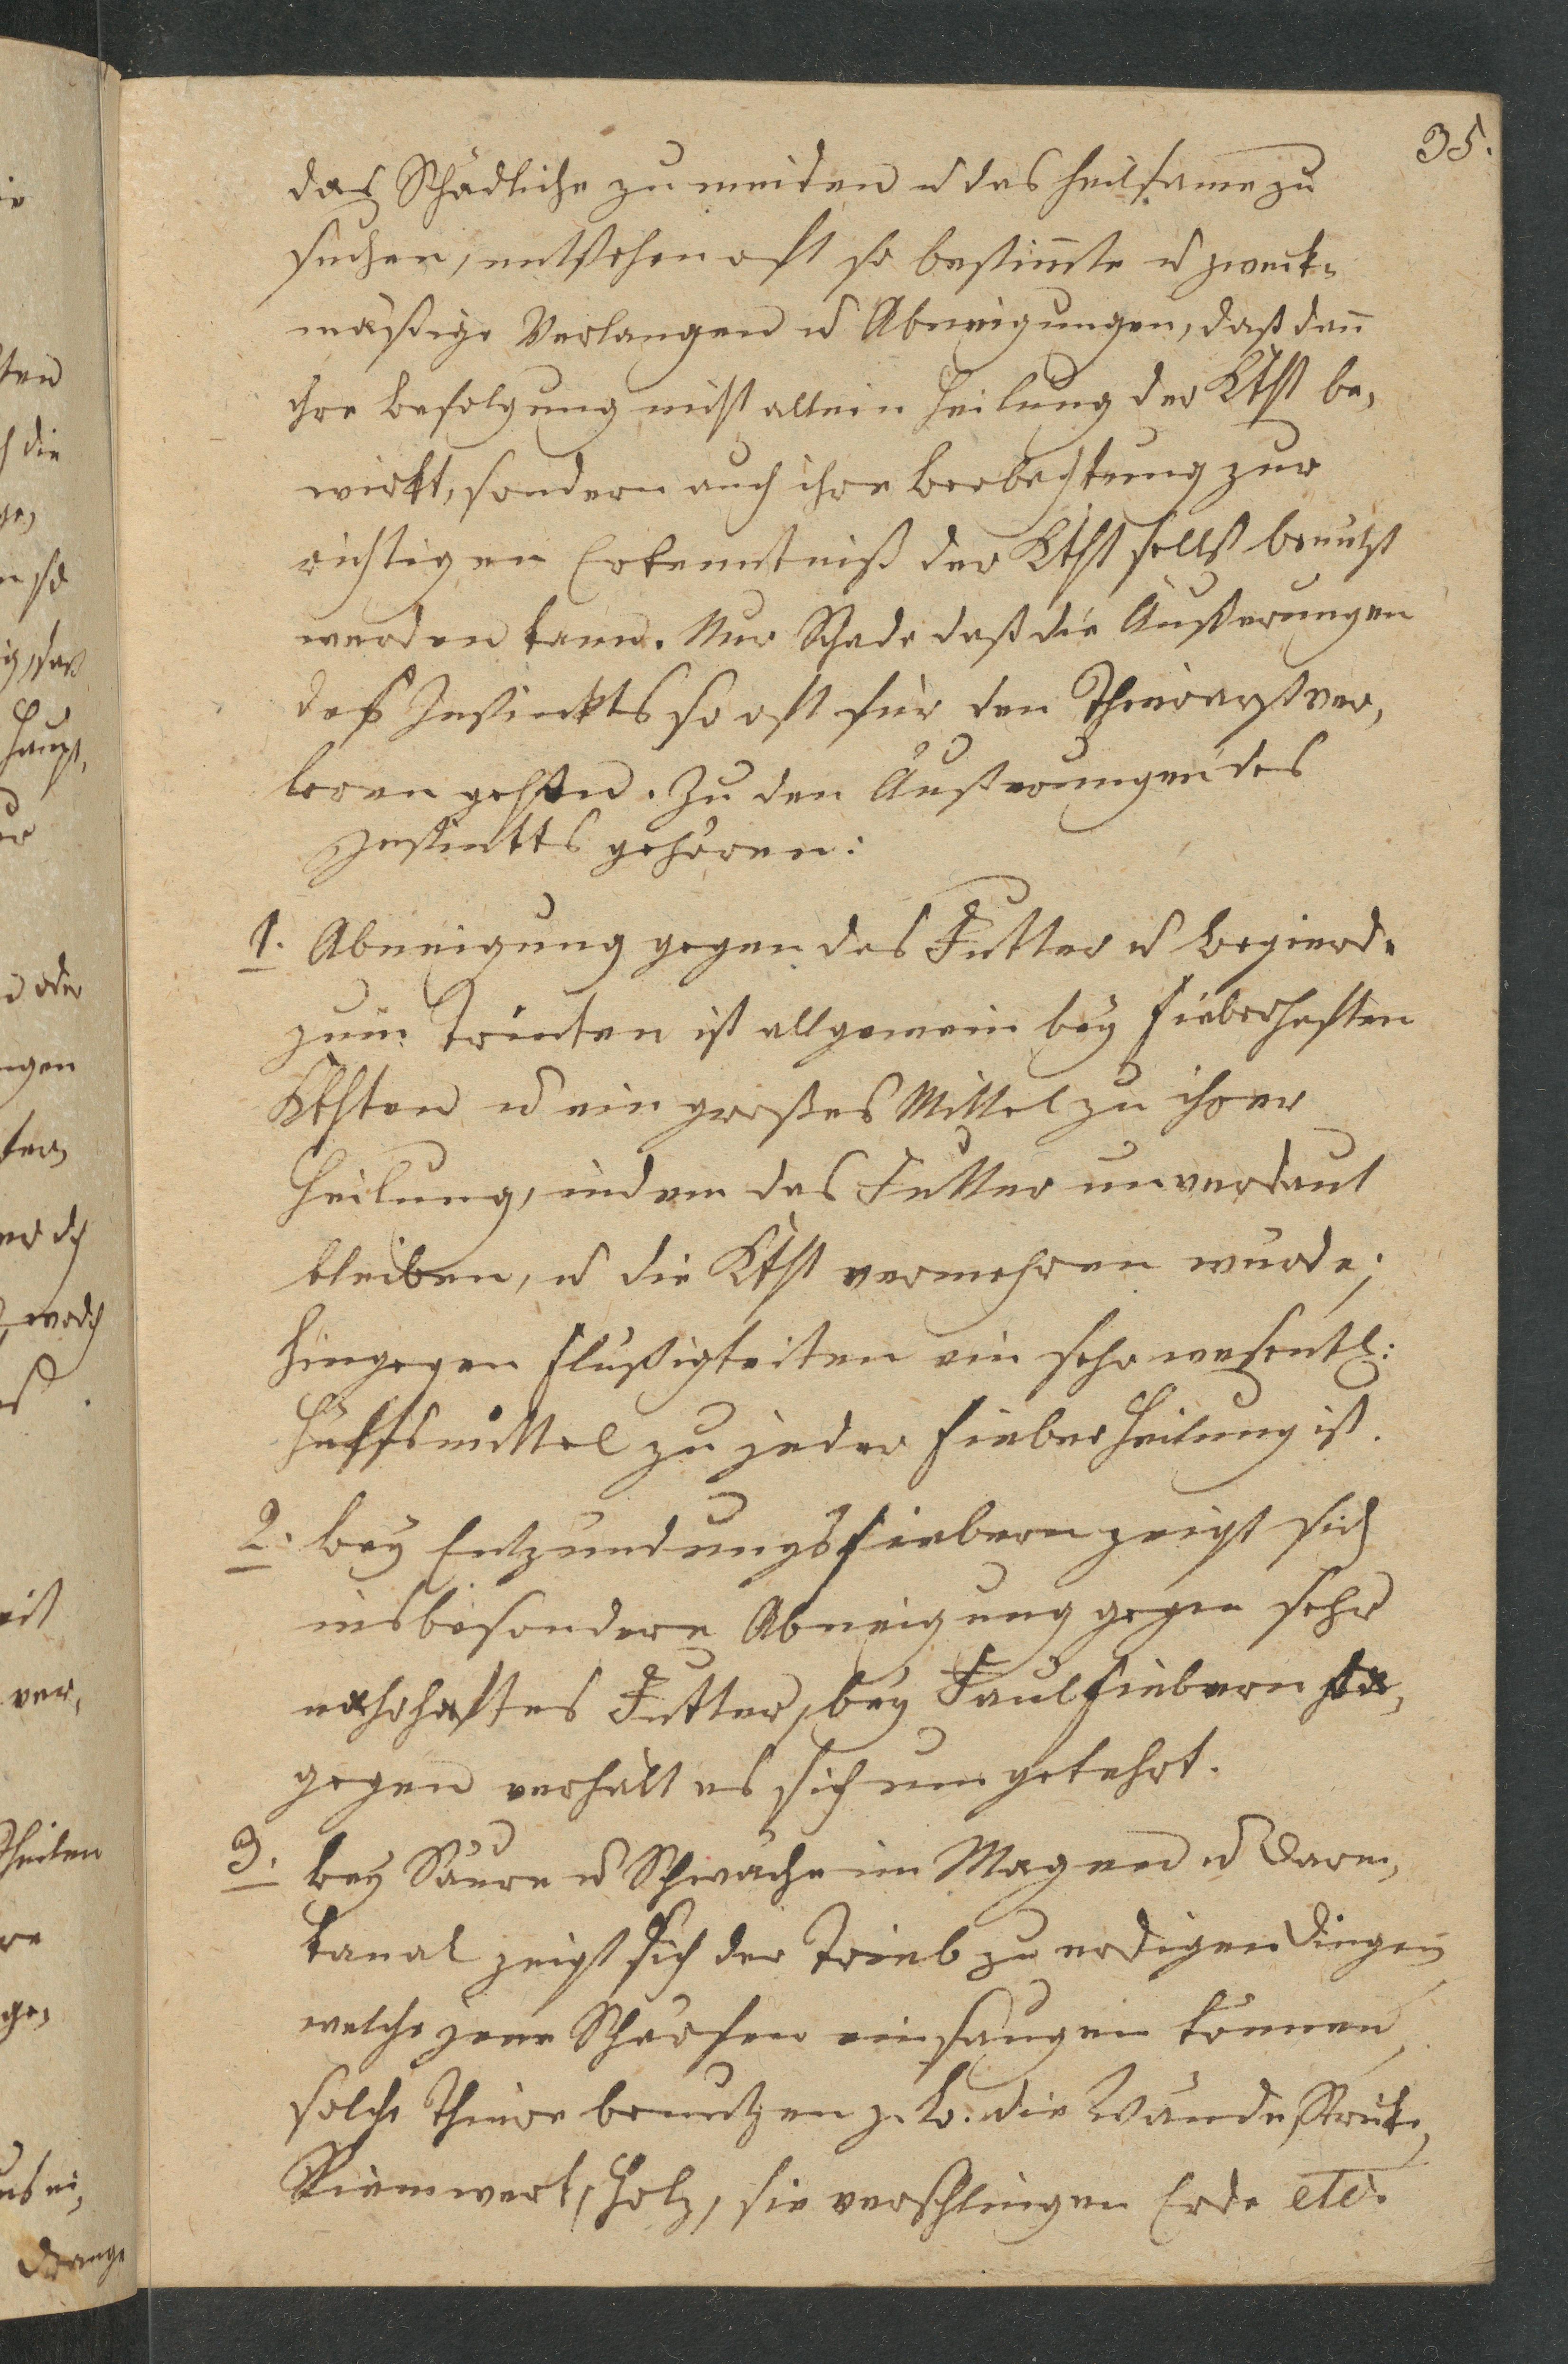 35.
das Schädliche zu meiden u das heilsame zu
suchen, entstehen oft so bestim̅te u zweck-
mäßige Verlangen u Abneigungen, daß dan̅
ihre Befolgung nicht allein Heilung der Kkht be-
wirkt, sondern auch ihre Beobachtung zur
richtigen Erkenntniß der Kkht selbst benutzt
werden kann. Nur Schade daß die Äußerungen
deß Instinckts so oft für den Thierarzt ver-
loren gehen. Zu den Äußerungen des
Instinkts gehören:
1. Abneigung gegen das Futter u Begierde
zum Trinken ist allgemein bey fieberhaften
Kkhten u ein großes Mittel zu ihrer
Heilung, indem das Futter unverdaut
bleiben, u die Kkht vermehren wurde;
hingegen Flußigkeiten ein sehr wesentl:
Hülfsmittel zu jeder Fieberheilung ist.
2. Bey Entzundungsfiebern zeigt sich
insbesondere Abneigung gegen sehr
nahrhaftes Futter, bey Faulfiebern hin-
gegen verhält es sich umgekehrt.
3. Bey Säure u Schwäche im Magen u Darm-
kanal zeigt sich der Trieb zu erdigen Dingen
welche jene Schärfen einsaugen können,
solche Thiere benutzen z. B. die Wände
Riemwerk, Holz, sie verschlingen Erde etc.